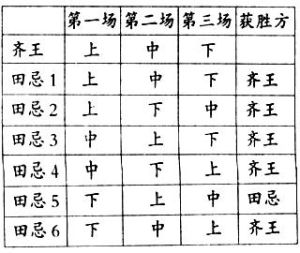 第一场 第二场 第三场 获胜方
齐王 上 中 下
田忌1 上 中 下 齐王
田忌2 上 下 中 齐王
田忌3 中 上 下 齐王
田忌4 中 下 上 齐王
田忌5 下 上 中 田忌
田忌6 下 中 上 齐王